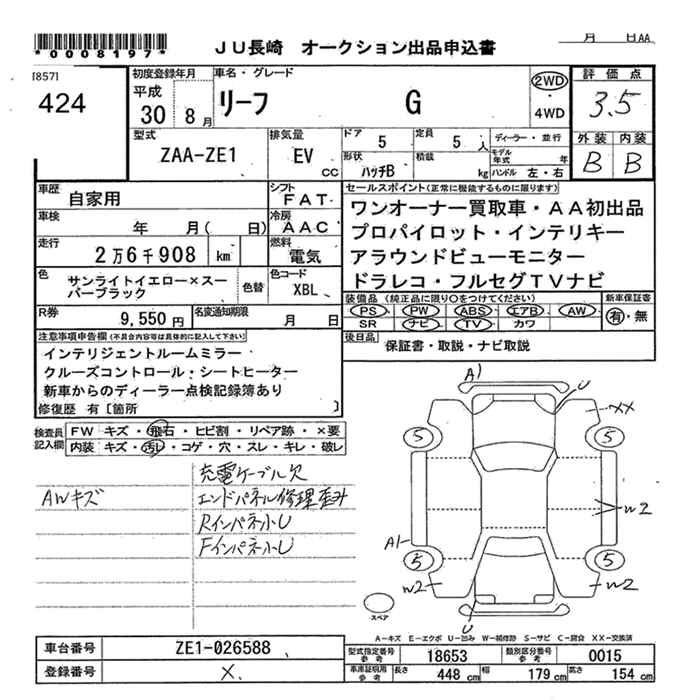 *0008197*
JU長崎 オークション出品申込書
月 日AA
[857]
424
初度登録年月
平成
30 8月
車名・グレード
リーフ G
2WD
・
4WD
評価点
3.5
型式
ZAA-ZE1
排気量
EV
CC
ドア 5
定員 5 人
ディーラー・並行
形状 ハッチB
積載 kg
モデル年式 年
ハンドル 左・右
外装 内装
B B
車歴 自家用
シフト
FAT
車検 年 月( 日)
冷房
AAC
走行 2万6千908 km
燃料
電気
色 サンライトイエロー×スーパーブラック
色替
色コード
XBL
R券 9,550円
名変通知期限 月 日
セールスポイント(正常に機能するものに限ります)
ワンオーナー買取車・AA初出品
プロパイロット・インテリキー
アラウンドビューモニター
ドラレコ・フルセグTVナビ
装備品(純正品に限り○をつけてください)
新車保証書
PS PW ABS エアB AW
SR ナビ TV カワ
有・無
後日品 保証書・取説・ナビ取説
注意事項申告欄(不具合内容等は具体的に記入して下さい)
インテリジェントルームミラー
クルーズコントロール・シートヒーター
新車からのディーラー点検記録簿あり
修復歴 有[箇所 ]
検査員記入欄
FW キズ・飛石・ヒビ割・リペア跡・×要
内装 キズ・汚れ・コゲ・穴・スレ・キレ・破レ
充電ケーブル欠
AWキズ
エンドパネル修理歪み
Rインパネ小U
Fインパネ小U
A1
U
XX
5 5
W2
A1
5 5
W2 W2
U
スペア
A-キズ E-エクボ U-凹み W-補修跡 S-サビ C-腐食 XX-交換済
車台番号 ZE1-026588
登録番号 X
型式指定番号 参考 18653
類別区分番号 参考 0015
車庫証明用 参考 長さ 448 cm 幅 179 cm 高さ 154 cm